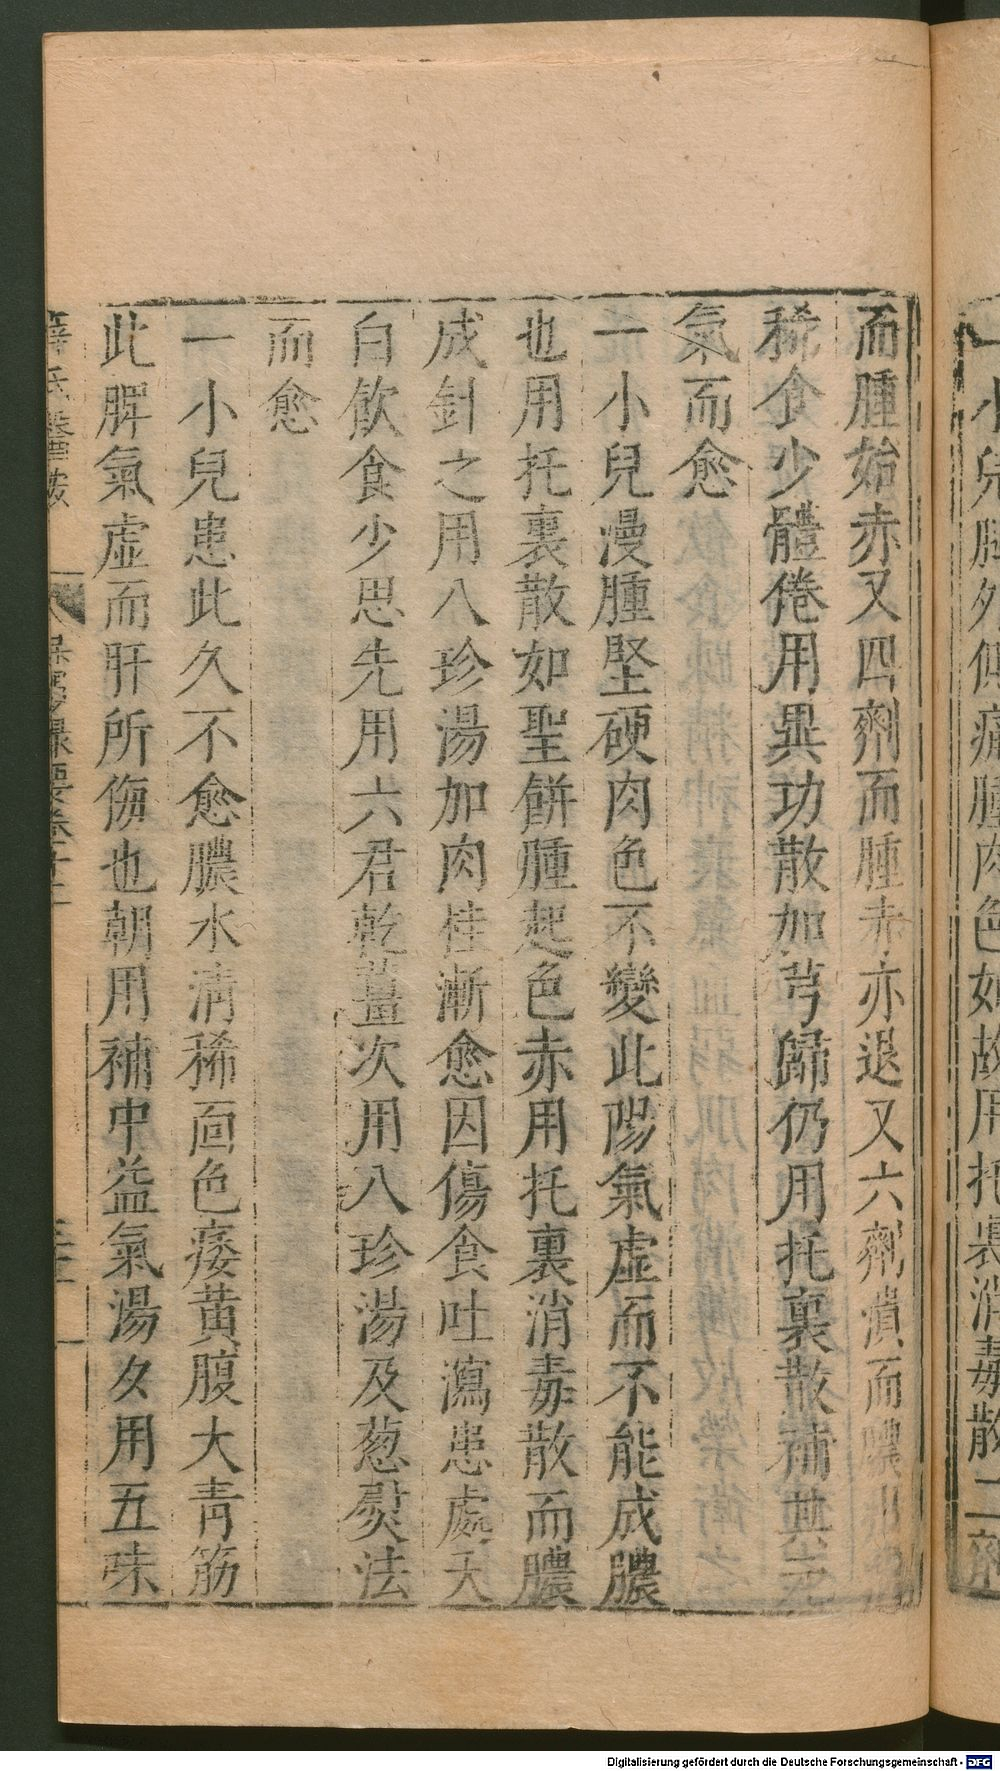 一小兒腿外側痛腫肉色如故用托裏消毒散二劑
而腫始赤又四劑而腫赤亦退又六劑潰而膿出
稀食少體倦用異功散加芎歸仍用托裏散補其元
氣而愈
一小兒漫腫堅硬肉色不變此陽氣虛而不能成膿
也用托裏散如聖餅腫起色赤用托裏消毒散而膿
成針之用八珍湯加肉桂漸愈因傷食吐瀉患處天
白飲食少思先用六君乾薑次用八珍湯及葱熨法
而愈
一小兒患此久不愈膿水清稀面色痿黃腹大青筋
此脾氣虛而肝所傷也朝用補中益氣湯夕用五味
薛氏醫按 保嬰撮要卷十二
Digitalisierung gefördert durch die Deutsche Forschungsgemeinschaft - DFG